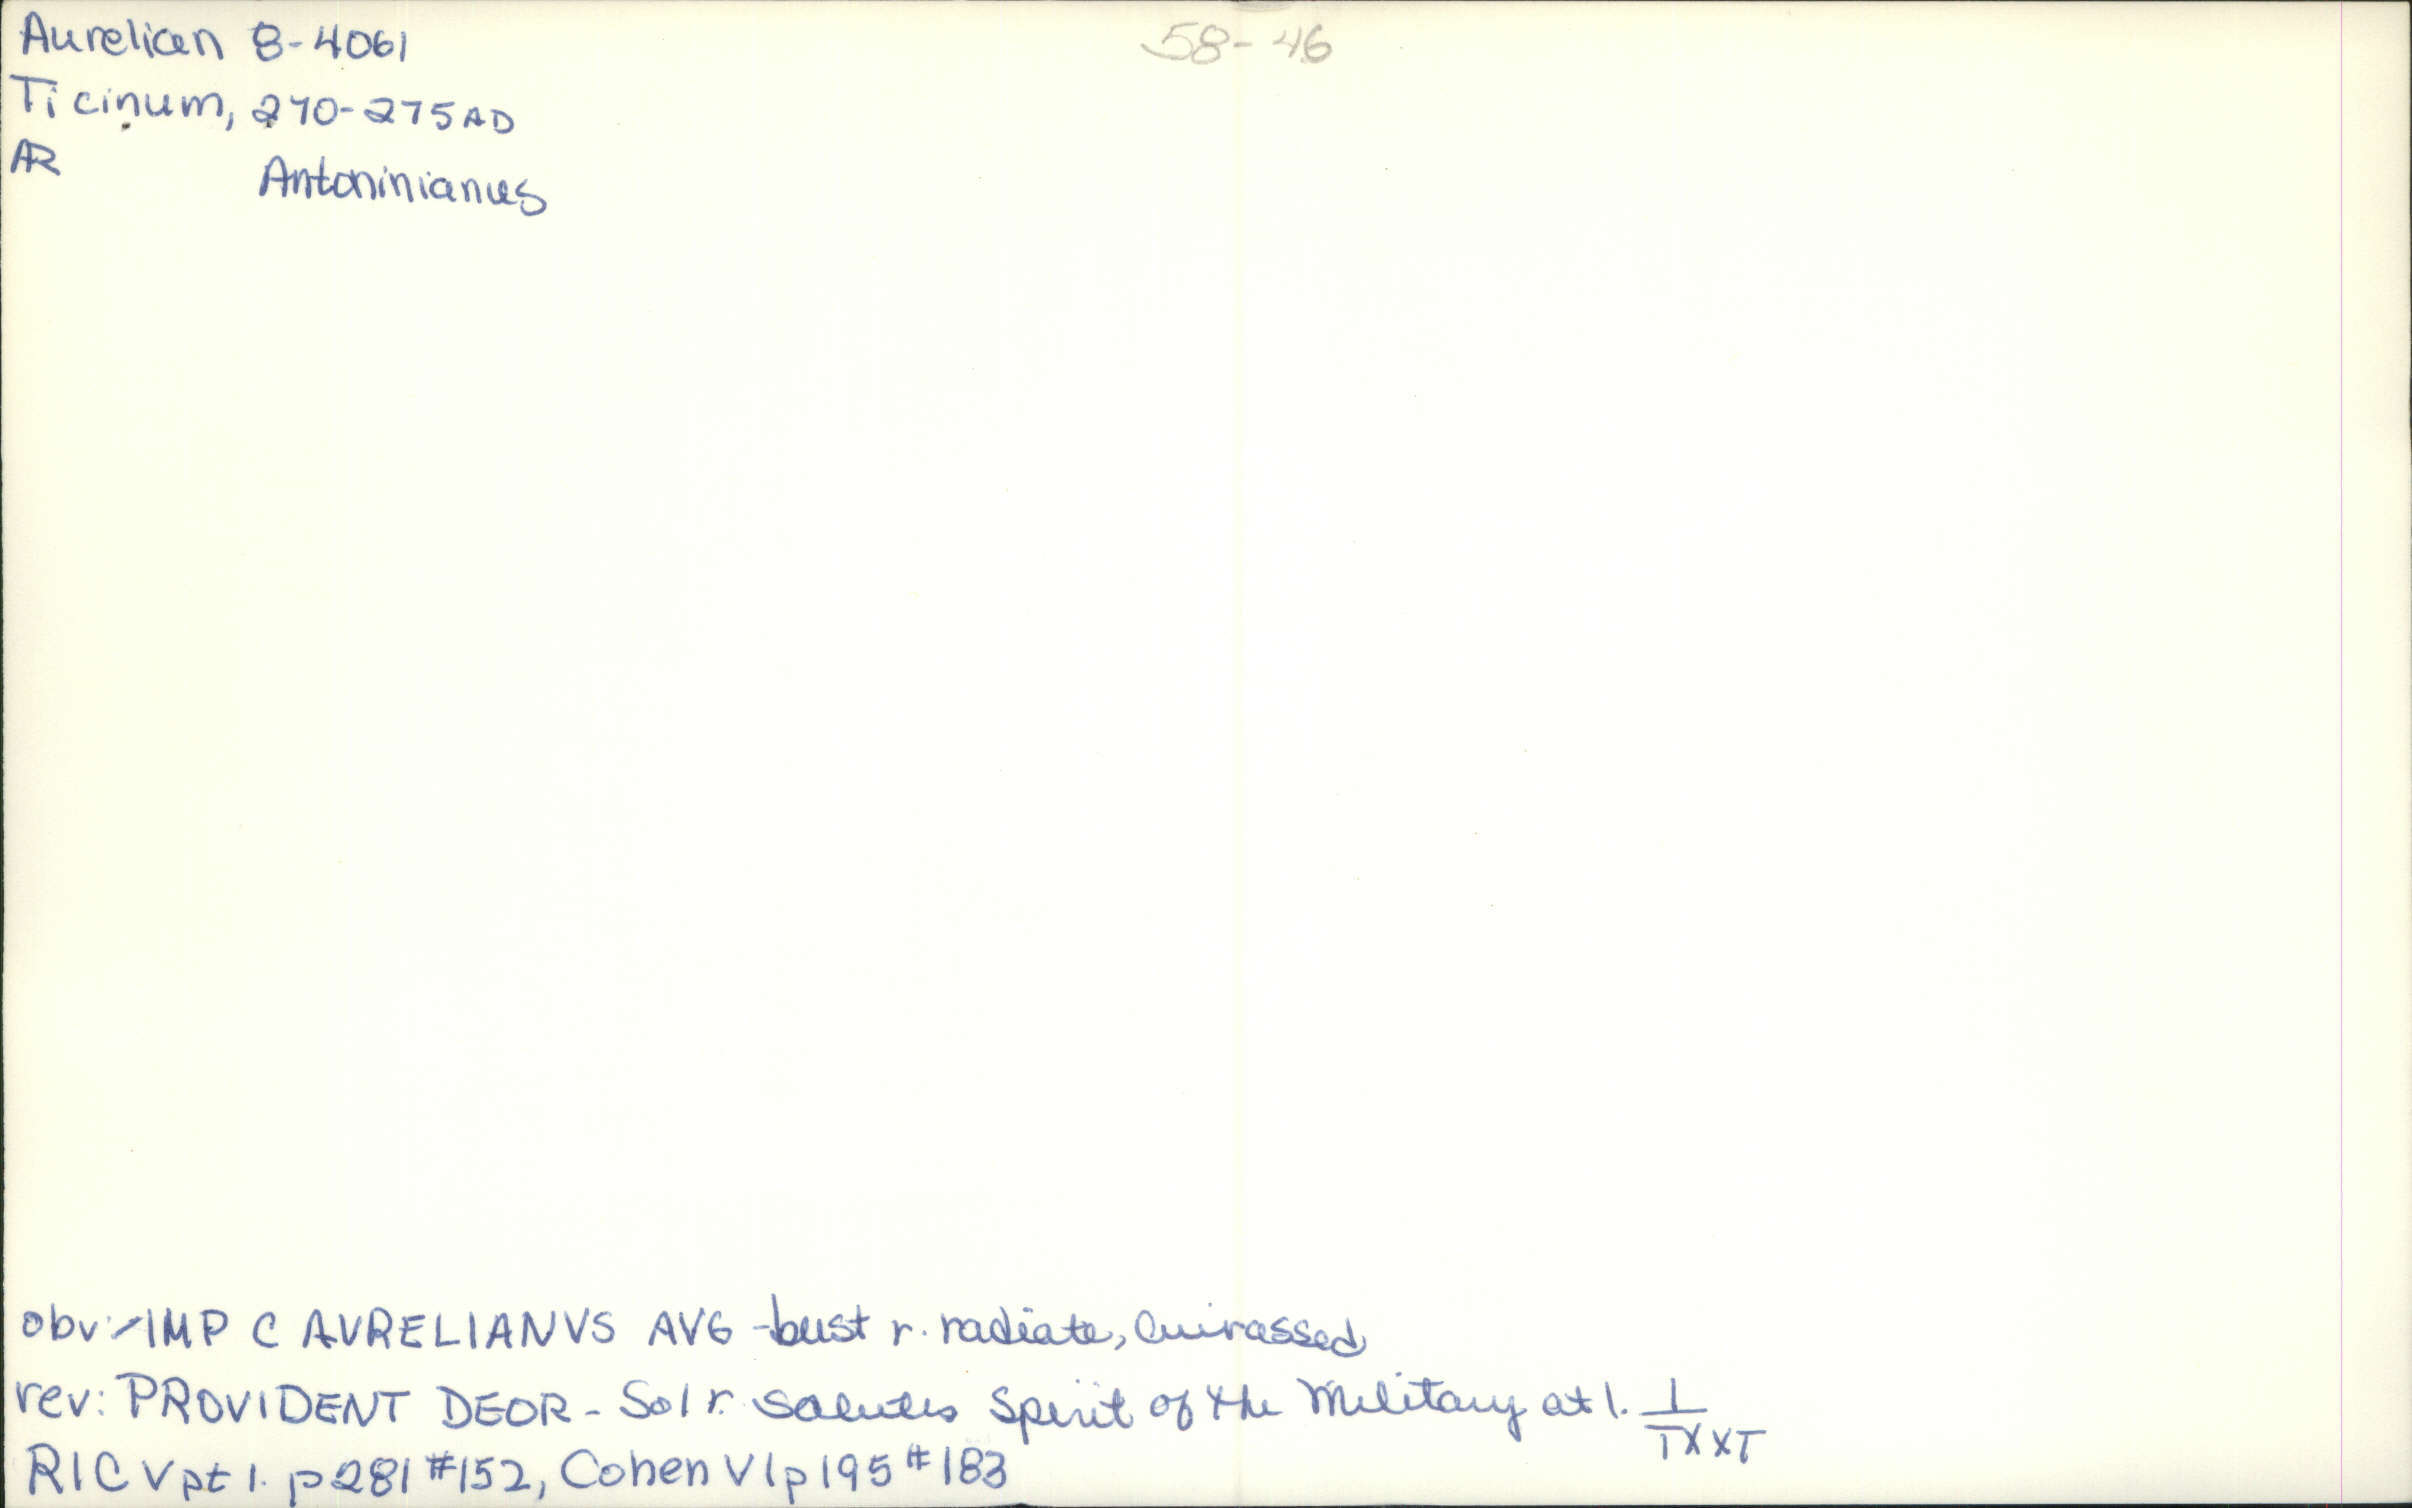 Aurelian 8-4061
58-46
Ticinum, 270-275 AD
AR
Antoninianus
obv:-IMP C AVRELIANVS AVG -bust r. radiate, Cuirassed
rev: PROVIDENT DEOR - Sol r. salutes Spirit of the Military at l. ⊥
TXXT
RIC V pt 1. p 281 #152, Cohen VI p 195 #183